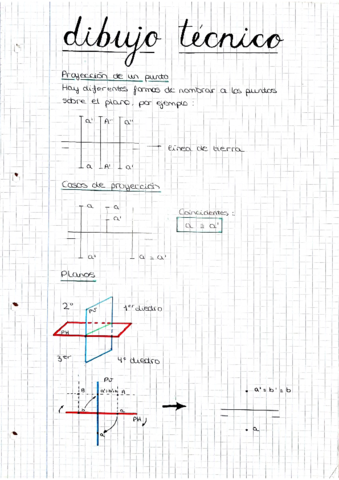 dibujo técnico
Proyección de un punto
Hay diferentes formas de nombrar a los puntos
sobre el plano, por ejemplo:
a' A" a"
a A' a'
línea de tierra
Casos de proyección
a a
a'
a' a ≡ a'
Coincidentes:
a ≡ a'
Planos
2º PV 1er diedro
PH
3er 4º diedro
PV
B A
PH
a
a' ≡ b' ≡ b
a